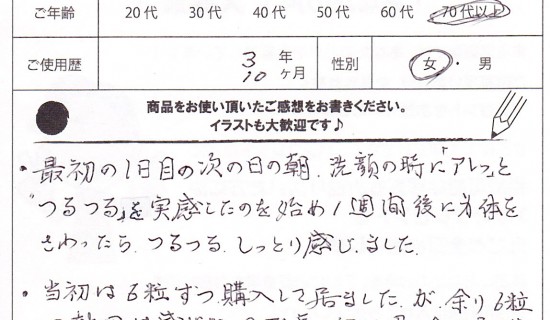 ご年齢 20代 30代 40代 50代 60代 70代以上
ご使用歴 3年 10ヶ月 性別 女・男
商品をお使い頂いたご感想をお書きください。
イラストも大歓迎です♪
・最初の1日目の次の日の朝、洗顔の時に「アレッと
"つるつる」を実感したのを始め1週間後に身体を
さわったら、つるつる、しっとり感じました。
・当初は6粒ずつ購入して居ましたが、余り6粒